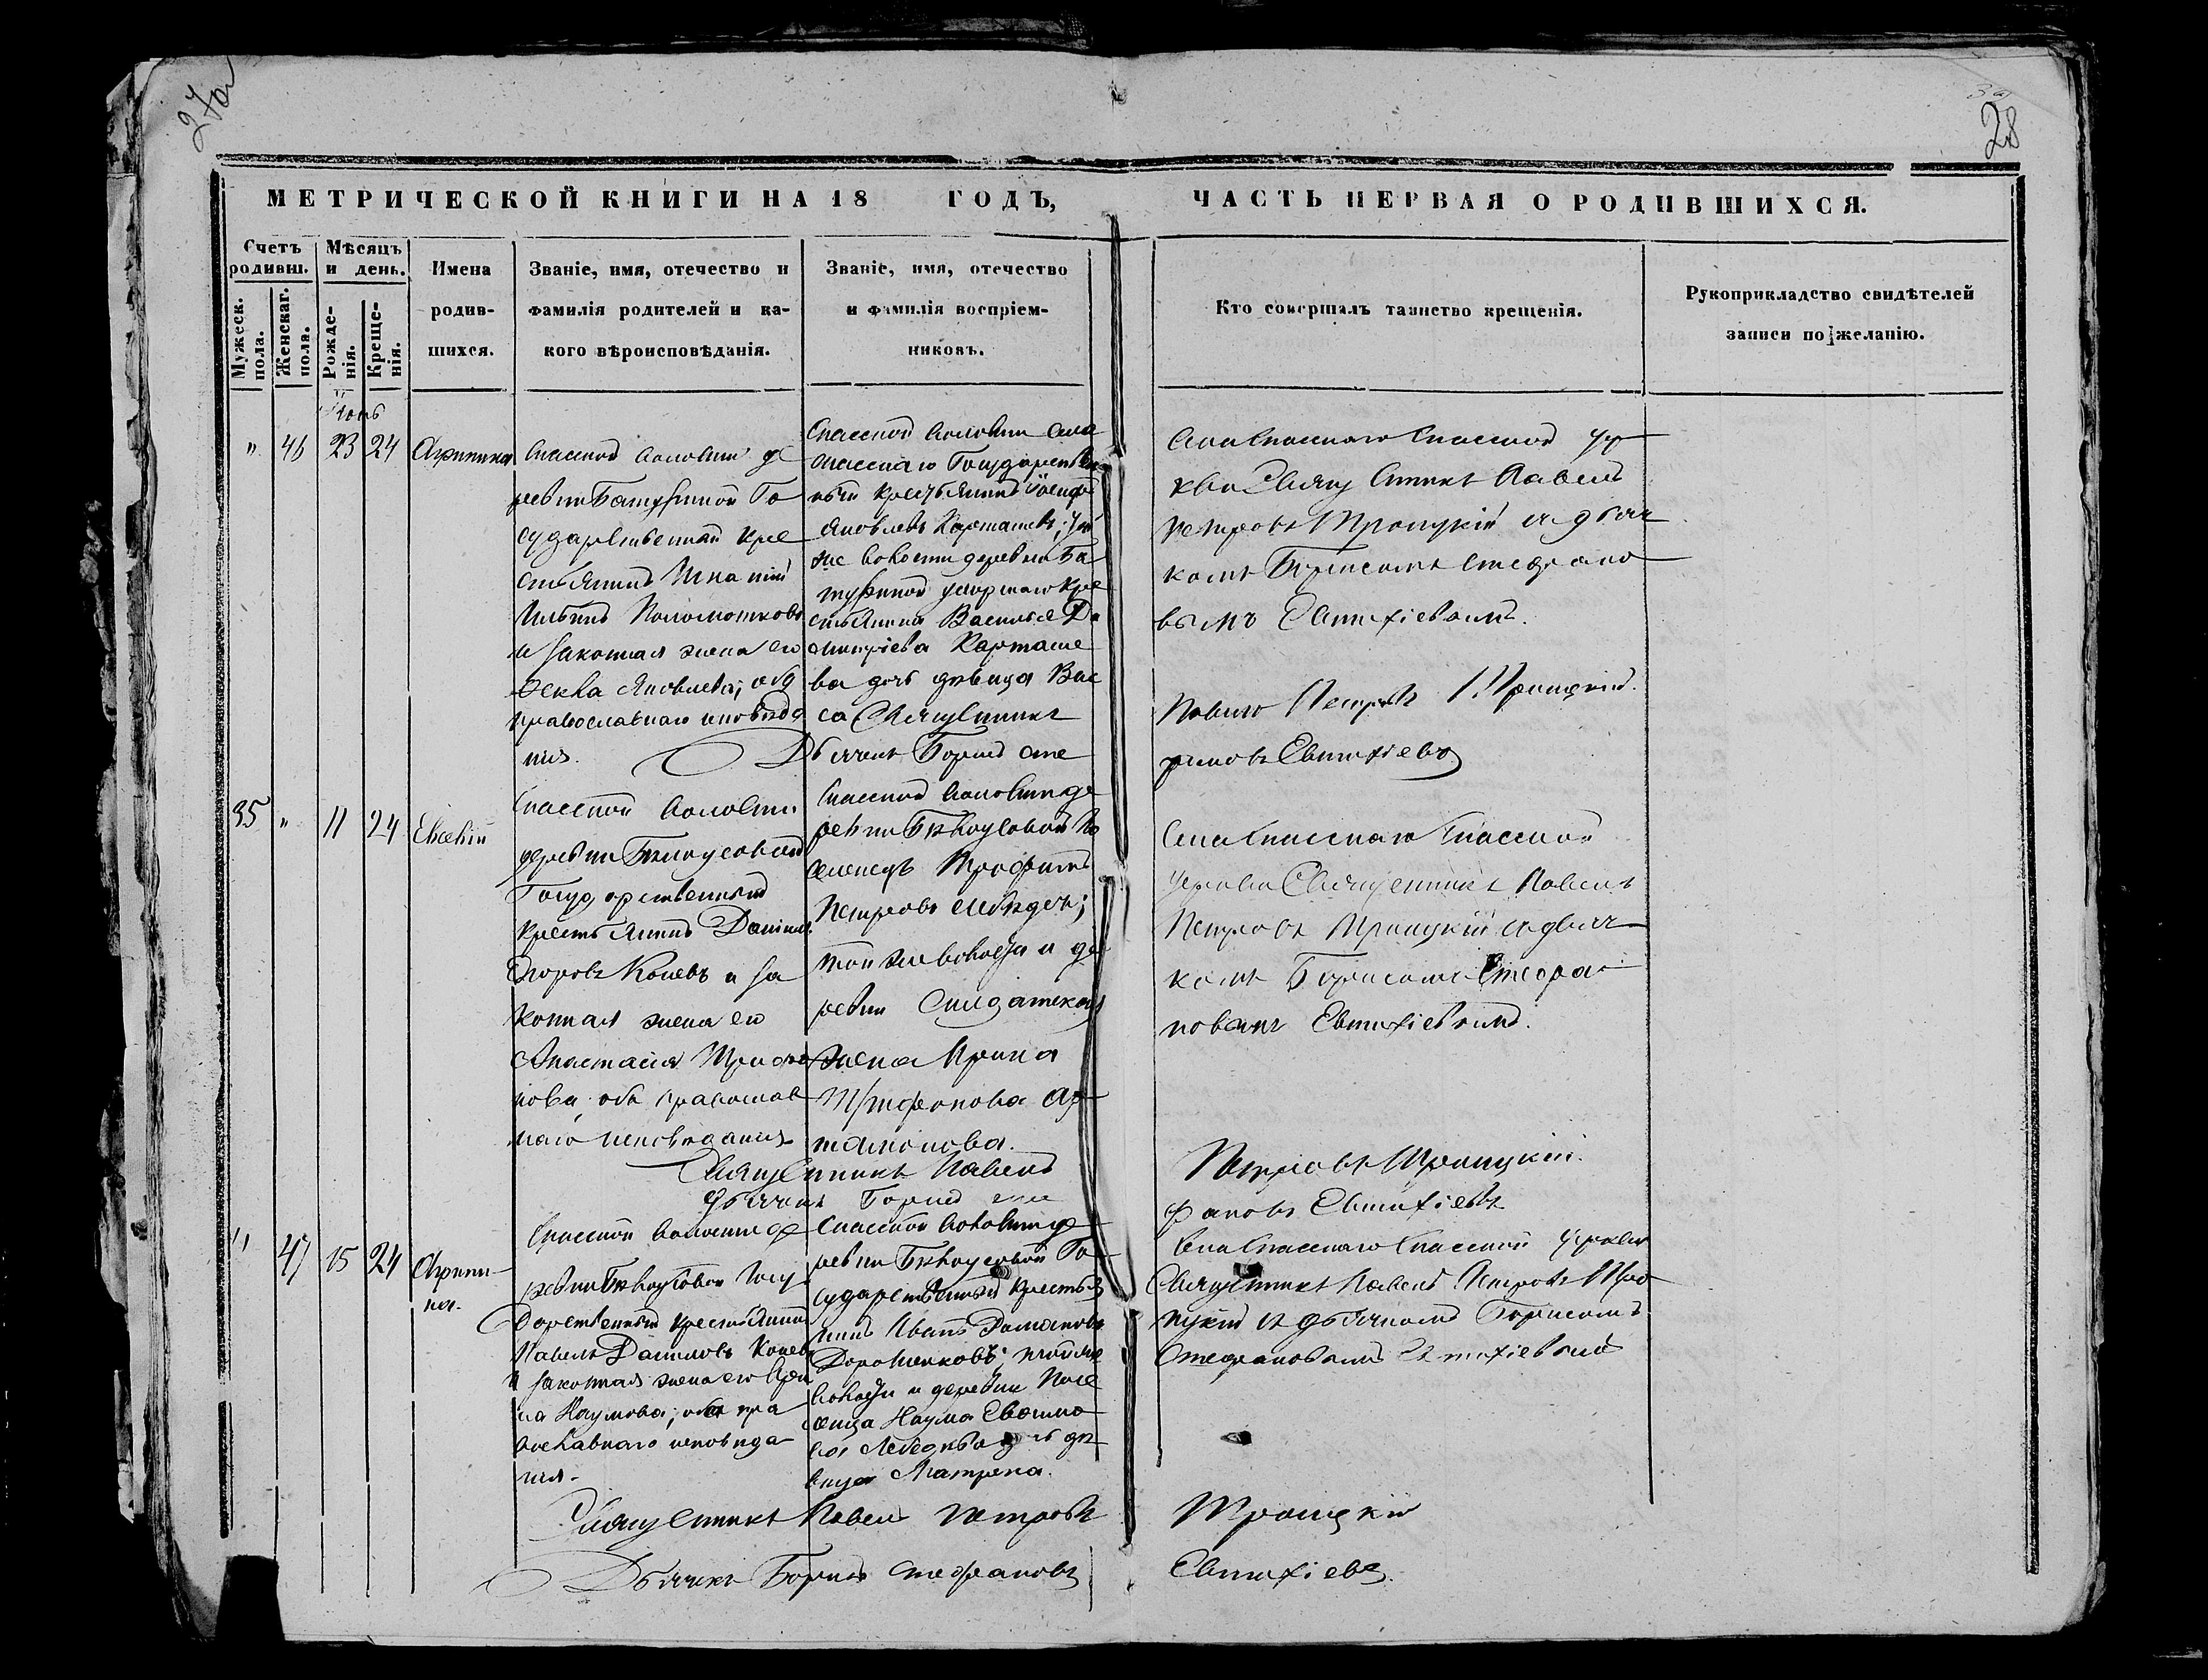 27об
28
МЕТРИЧЕСКОЙ КНИГИ НА 18 ГОДЪ,
ЧАСТЬ ПЕРВАЯ О РОДИВШИХСЯ.
Счетъ родивш.
Мужеск. пола.
Женскаг. пола.
Мѣсяцъ и день.
Рожденія.
Крещенія.
Имена
родив-
шихся.
Званіе, имя, отечество и
фамилія родителей и ка-
кого вѣроисповѣданія.
Званіе, имя, отечество
и фамилія воспріем-
никовъ.
Кто совершалъ таинство крещенія.
Рукоприкладство свидѣтелей
записи по желанію.
Іюнь
" 46 23 24 Агрипина
Спасской волости де
ревни Батуриной Го
сударственный кре
стьянинъ Игнатій
Ильинъ Поломошновъ
и законная жена его
Ѳекла Яковлева; оба
православнаго исповѣда
нія.
Спасской волости села
Спасскаго Государствен
ный крестьянинъ Іосифъ
Яковлевъ Карташевъ; той
же волости деревни Ба
туриной умершаго кре
стьянина Василья Ди
митріева Карташе
ва дочь дѣвица Вас
са Священникъ
Дьячекъ Борисъ Сте
Села Спасскаго Спасской цер
кви Священникъ Павелъ
Петровъ Троицкій съ дьяч
комъ Борисомъ Стефано
вымъ Евтихіевымъ.
Павелъ Петровъ Троицкій.
фановъ Евтихіевъ
35 " 11 24 Евсевій
Спасской волости
деревни Бѣлоусовой
Государственный
крестьянинъ Даніилъ
Егоровъ Коневъ и за
конная жена его
Анастасія Трифо
нова; оба православ
наго исповѣданія
Спасской волости де
ревни Бѣлоусовой По
селенецъ Трофимъ
Петровъ
той же волости и де
ревни Солдатская
жена Ирина
Трифонова Ар
тамонова.
Священникъ Павелъ
Дьячекъ Борисъ Сте
Села Спасскаго Спасской
церкви Священникъ Павелъ
Петровъ Троицкій съ дьяч
комъ Борисомъ Стефа
новымъ Евтихіевымъ.
Петровъ Троицкій.
фановъ Евтихіевъ
" 47 15 24 Агрипи
на.
Спасской волости де
ревни Бѣлоусовой Госу
дарственный крестьянинъ
Павелъ Даниловъ Коневъ
и законная жена его Ири
на Наумова; оба пра
вославнаго исповѣда
нія.
Спасской волости де
ревни Бѣлоусовой Го
сударственный крестья
нинъ Иванъ Романовъ
Дорошенковъ; той же
волости и деревни Посе
ленца Наума
дочь дѣ
вица Матрена.
Села Спасскаго Спасской церкви
Священникъ Павелъ Петровъ Тро
ицкій съ дьячкомъ Борисомъ
Стефановымъ Евтихіевымъ
Священникъ Павелъ Петровъ Троицкій
Дьячекъ Борисъ Стефановъ Евтихіевъ.